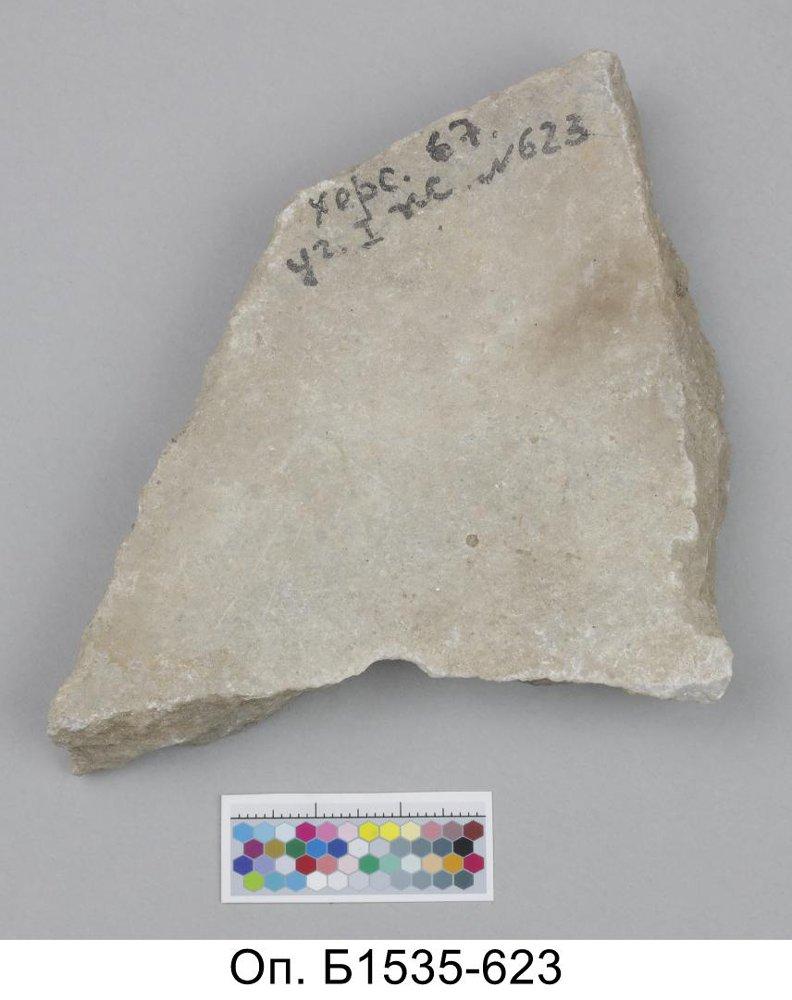 Херс. 67.
уг. I пс. №623
Оп. Б1535-623